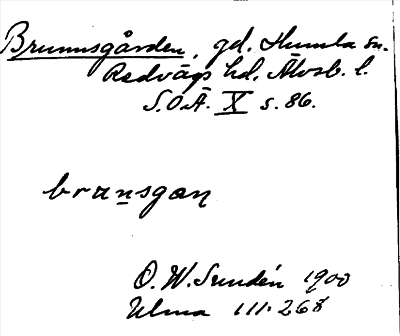 Brunnsgården, gd. Humla sn.
Redvägs hd, Älvsb. l.
S.O.Ä. X s. 86.
brunsgan
O. W. Sundén 1900
Ulma 111:268